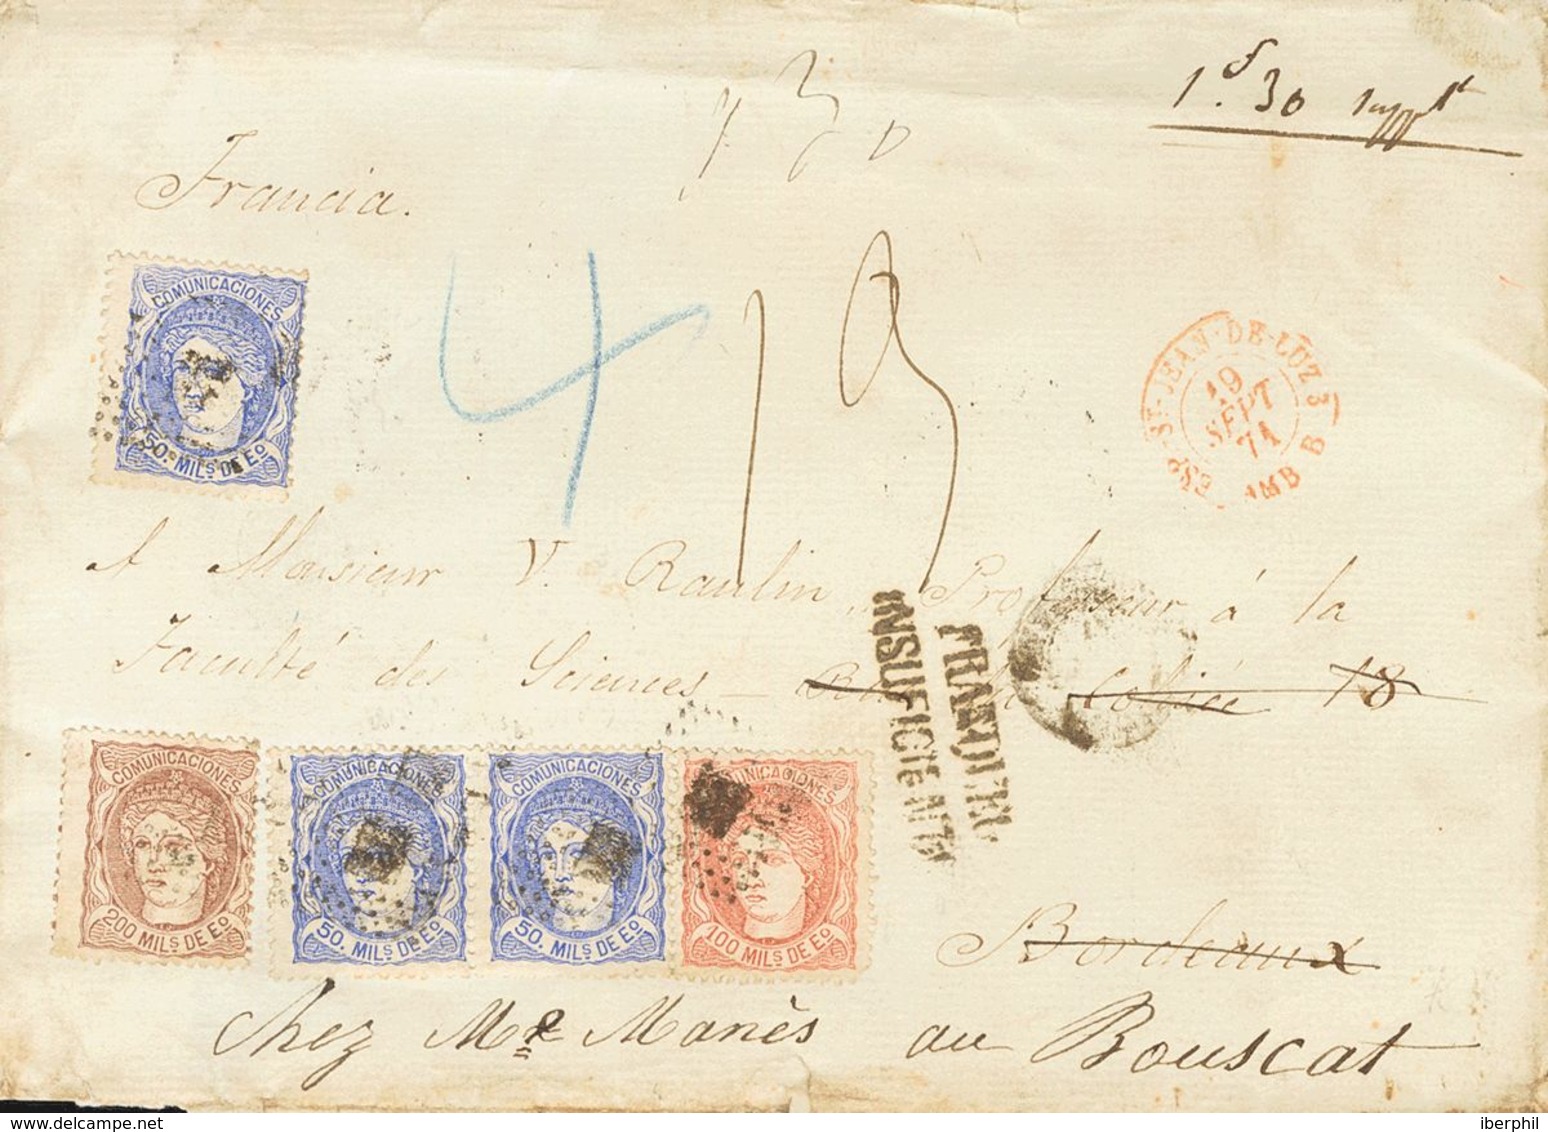 1f.30 suppt
1 30
Francia.
COMUNICACIONES
50. MILS DE Eo
4
19
ESP. ST-JEAN-DE-LUZ 3
19
SEPT
71
AMB B
A Monsieur V. Raulin, Professeur à la
Faculté des Sciences — 18
FRANQUEO
INSUFICIENTE
COMUNICACIONES
200 MILS DE Eo
COMUNICACIONES
50. MILS DE Eo
COMUNICACIONES
50. MILS DE Eo
COMUNICACIONES
100 MILS DE Eo
Bordeaux
chez Mr Manès au Bouscat
delcampe.net
iberphil